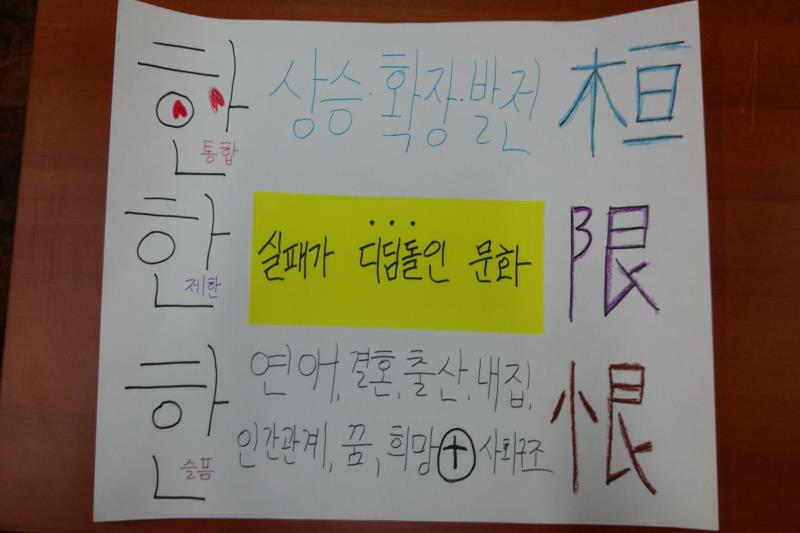 한 상승·확장·발전 桓
통합
한 실패가 디딤돌인 문화 限
제한
한 연애, 결혼, 출산, 내집, 恨
슬픔 인간관계, 꿈, 희망 + 사회구조